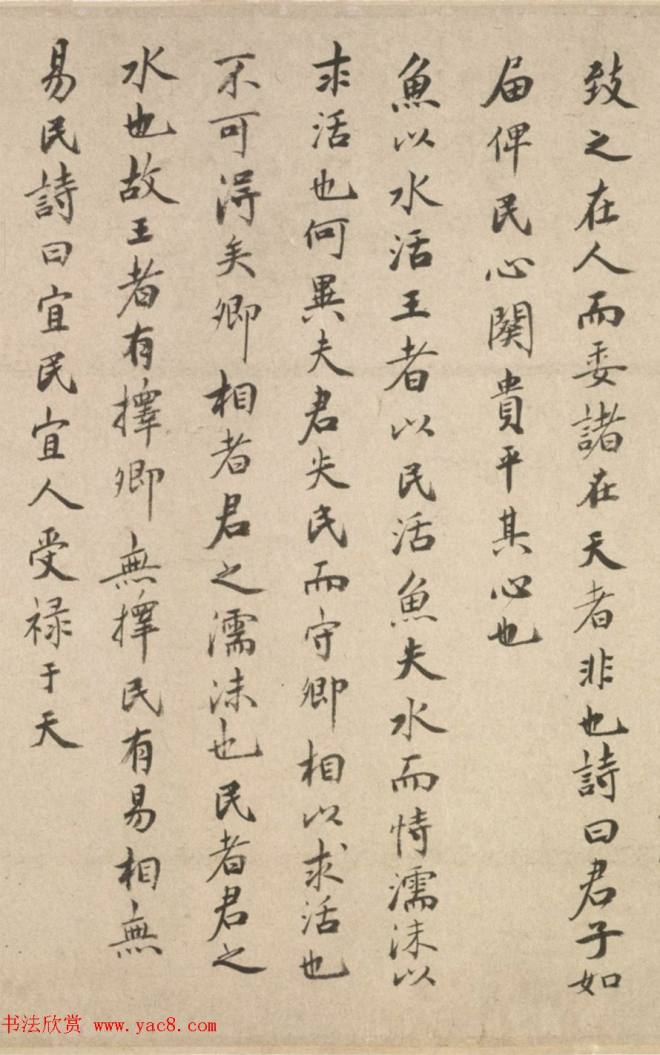 致之在人而委諸在天者非也詩曰君子如
届俾民心闋貴平其心也
魚以水活王者以民活魚失水而恃濡沫以
求活也何異夫君失民而守卿相以求活也
不可得矣卿相者君之濡沫也民者君之
水也故王者有擇卿無擇民有易相無
易民詩曰宜民宜人受禄于天
书法欣赏 www.yac8.com